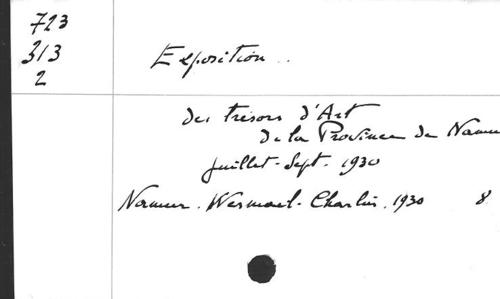 723
313
2
Exposition..
des trésors d'Art
de la Province de Namur
juillet-Sept. 1930
Namur. Wesmael-Charlier. 1930 8